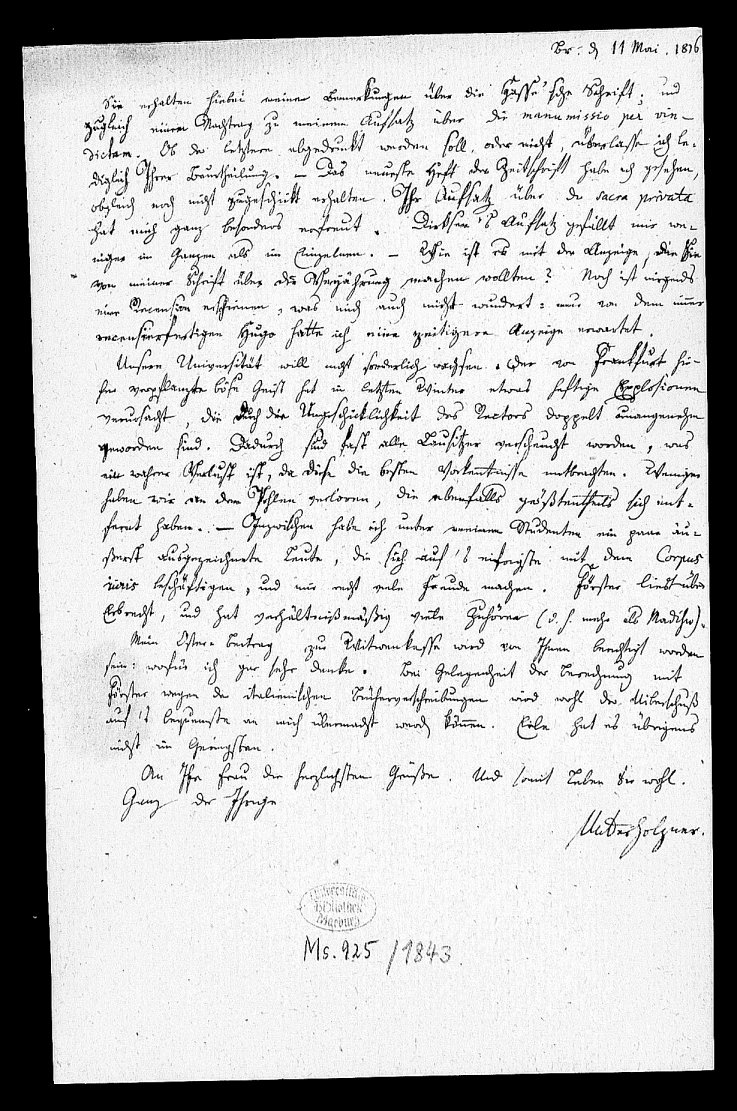 Br: d 11 Mai. 1816
Sie erhalten hiebei meine Bemerkungen über die Hasse'sche Schrift; und
zugleich einen Nachtrag zu meinem Aufsatz über die manumissio per vin-
dictam. Ob der letztere abgedruckt werden soll, oder nicht, überlasse ich le-
diglich Ihrer Beurtheilung. – Das neueste Heft der Zeitschrift habe ich gesehen,
obgleich noch nicht zugeschickt erhalten. Ihr Aufsatz über die sacra privata
hat mich ganz besonders erfreut. Dirksen's Aufsatz gefällt mir we-
niger im Ganzen als im Einzelnen. – Wie ist es mit der Anzeige, die Sie
von meiner Schrift über die Verjährung machen wollten? Noch ist nirgends
eine Recension erschienen, was mich auch nicht wundert: nur von dem immer
recensierfertigen Hugo hatte ich eine zeitigere Anzeige erwartet.
Unsere Universität will nicht sonderlich wachsen. Der von Frankfurt hie-
her verpflanzte böse Geist hat im letzten Winter etwas heftige Explosionen
verursacht, die durch die Ungeschicklichkeit des Rectors doppelt unangenehm
geworden sind. Dadurch sind fast alle Lausitzer verscheucht worden, was
ein wahrer Verlust ist, da diese die besten Vorkenntnisse mitbrachten. Weniger
haben wir an den Pohlen verloren, die ebenfalls größtentheils sich ent-
fernt haben. – Inzwischen habe ich unter meinen Studenten ein paar äu-
ßerst ausgezeichnete Leute, die sich auf's eifrigste mit dem Corpus
iuris beschäftigen, und mir recht viele Freude machen. Förster liest über
Erbrecht, und hat verhältnißmäßig viele Zuhörer (d. h. mehr als Madihn).
Mein Oster-Beitrag zur Witwenkasse wird von Ihnen berichtigt worden
sein: wofür ich gar sehr danke. Bei Gelegenheit der Berechnung mit
Förster wegen der italienischen Bücherverschreibungen wird wohl der Ueberschuß
auf's bequemste an mich übermacht werden können. Eile hat es übrigens
nicht im Geringsten.
An Ihre Frau die herzlichsten Grüße. Und somit leben Sie wohl.
Ganz der Ihrige
Unterholzner.
Universitäts
Bibliothek
Marburg
Ms. 925/1843